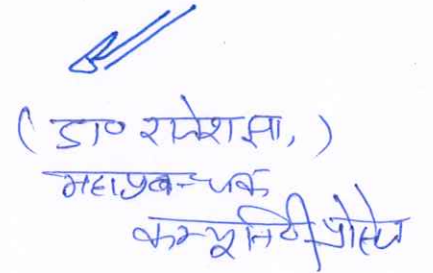 ( डा० रमेश झा, )
महाप्रबन्धक
कम्यूनिटी प्रोसेस